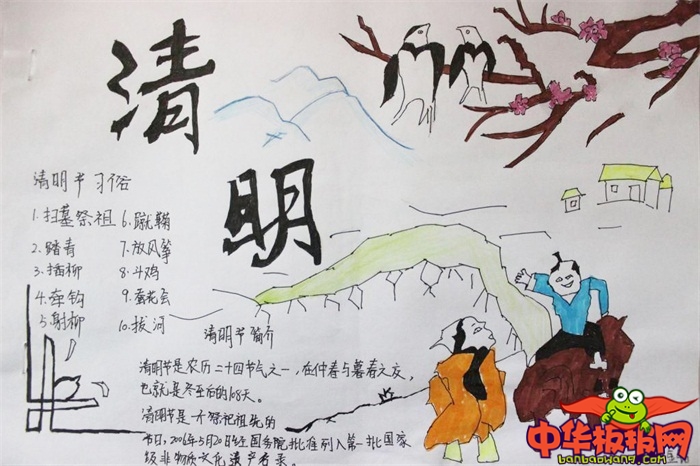 清
明
清明节习俗
1.扫墓祭祖 6.蹴鞠
2.踏青 7.放风筝
3.插柳 8.斗鸡
4.牵钩 9.蚕花会
5.射柳 10.拔河
清明节简介
清明节是农历二十四节气之一,在仲春与暮春之交,
也就是冬至后的108天。
清明节是一个祭祀祖先的
节日,2006年5月20日经国务院批准列入第一批国家
级非物质文化遗产名录。
中华板报网
banbaowang.com